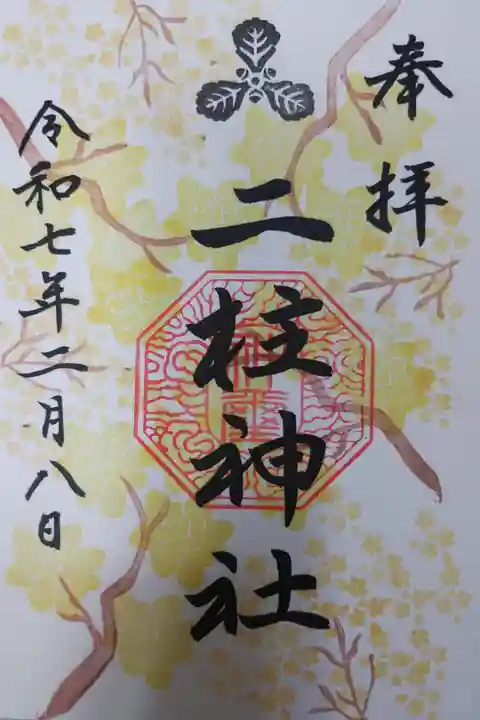 奉拝
二柱神社
令和七年二月八日